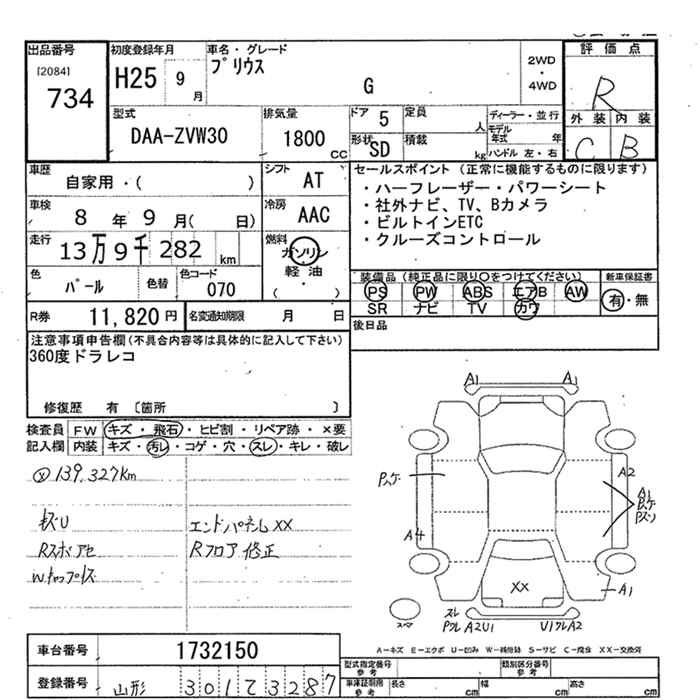 出品番号 初度登録年月 車名・グレード 評価点
[2084] プリウス 2WD
734 H25 9月 G ・4WD R
型式 排気量 ドア 5 定員 人 ディーラー・並行 外装 内装
DAA-ZVW30 1800CC 形状 SD 積載 kg モデル年式 年 ハンドル 左・右 C B
車歴 シフト セールスポイント (正常に機能するものに限ります)
自家用・( ) AT ・ハーフレーザー・パワーシート
車検 冷房 ・社外ナビ、TV、Bカメラ
8年 9月( 日) AAC ・ビルトインETC
走行 燃料 ・クルーズコントロール
13万9千282km ガソリン
色 色替 色コード 軽・油 装備品 (純正品に限り〇をつけてください) 新車保証書
パール 070 ( ) PS PW ABS エアB AW 有・無
SR ナビ TV カワ
R券 11,820円 名変通知期限 月 日 後日品
注意事項申告欄(不具合内容等は具体的に記入して下さい)
360度ドラレコ
修復歴 有 〔箇所 〕
検査員 FW キズ・飛石・ヒビ割・リペア跡・×要
記入欄 内装 キズ・汚レ・コゲ・穴・スレ・キレ・破レ
139,327km
エンドパネルXX
Rスポアセ Rフロア修正
A1 A1
A2
A1
A4
A1
XX
A2U1
A-キズ E-エクボ U-凹み W-補修跡 S-サビ C-腐食 XX-交換済
車台番号 1732150
登録番号 山形 301て3287
型式指定番号 参考 類別区分番号 参考
車庫証明用 参考 長さ cm 幅 cm 高さ cm